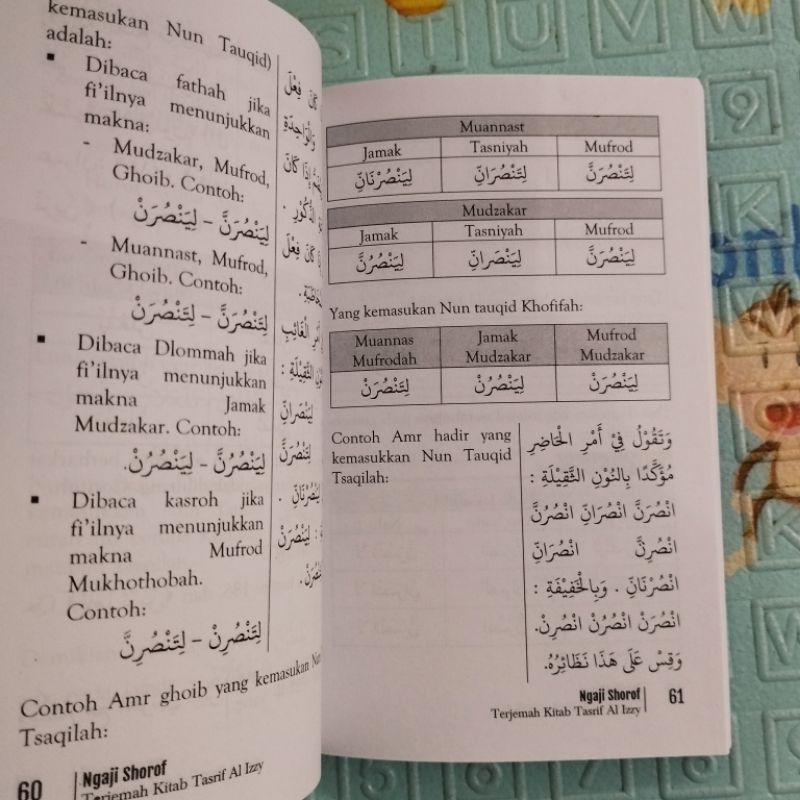 kemasukan Nun Tauqid)
adalah:
▪ Dibaca fathah jika
fi'ilnya menunjukkan
makna:
- Mudzakar, Mufrod,
Ghoib. Contoh:
لِيَنْصُرَنَّ – لِيَنْصُرَنْ
- Muannast, Mufrod,
Ghoib. Contoh:
لِتَنْصُرَنَّ – لِتَنْصُرَنْ
▪ Dibaca Dlommah jika
fi'ilnya menunjukkan
makna Jamak
Mudzakar. Contoh:
لِيَنْصُرُنَّ – لِيَنْصُرُنْ.
▪ Dibaca kasroh jika
fi'ilnya menunjukkan
makna Mufrod
Mukhothobah.
Contoh:
لِتَنْصُرِنْ – لِتَنْصُرِنَّ
Contoh Amr ghoib yang kemasukan Nun
Tsaqilah:
كَانَ فِعْلَ
وَالْوَاحِدَةِ
إِذَا كَانَ
الذُّكُورِ .
كَانَ فِعْلَ
أَمْرِ الْغَائِبِ
الثَّقِيلَةِ :
لِيَنْصُرَانِّ
لِتَنْصُرَنَّ
لِيَنْصُرَنْ
60 | Ngaji Shorof
Terjemah Kitab Tasrif Al Izzy
Muannast
Jamak Tasniyah Mufrod
لِيَنْصُرْنَانِّ لِتَنْصُرَانِّ لِتَنْصُرَنَّ
Mudzakar
Jamak Tasniyah Mufrod
لِيَنْصُرُنَّ لِيَنْصُرَانِّ لِيَنْصُرَنَّ
Yang kemasukan Nun tauqid Khofifah:
Muannas Jamak Mufrod
Mufrodah Mudzakar Mudzakar
لِتَنْصُرَنْ لِيَنْصُرُنْ لِيَنْصُرَنْ
Contoh Amr hadir yang
kemasukkan Nun Tauqid
Tsaqilah:
وَتَقُوْلُ فِيْ أَمْرِ الْحَاضِرِ
مُؤَكَّدًا بِالنُّوْنِ الثَّقِيْلَةِ :
انْصُرَنَّ انْصُرَانِّ انْصُرُنَّ
انْصُرِنَّ انْصُرَانِّ
انْصُرْنَانِّ . وَبِالْخَفِيْفَةِ :
انْصُرَنْ انْصُرُنْ انْصُرِنْ.
وَقِسْ عَلَى هَذَا نَظَائِرُهُ.
Ngaji Shorof | 61
Terjemah Kitab Tasrif Al Izzy
S T U V W
9
K